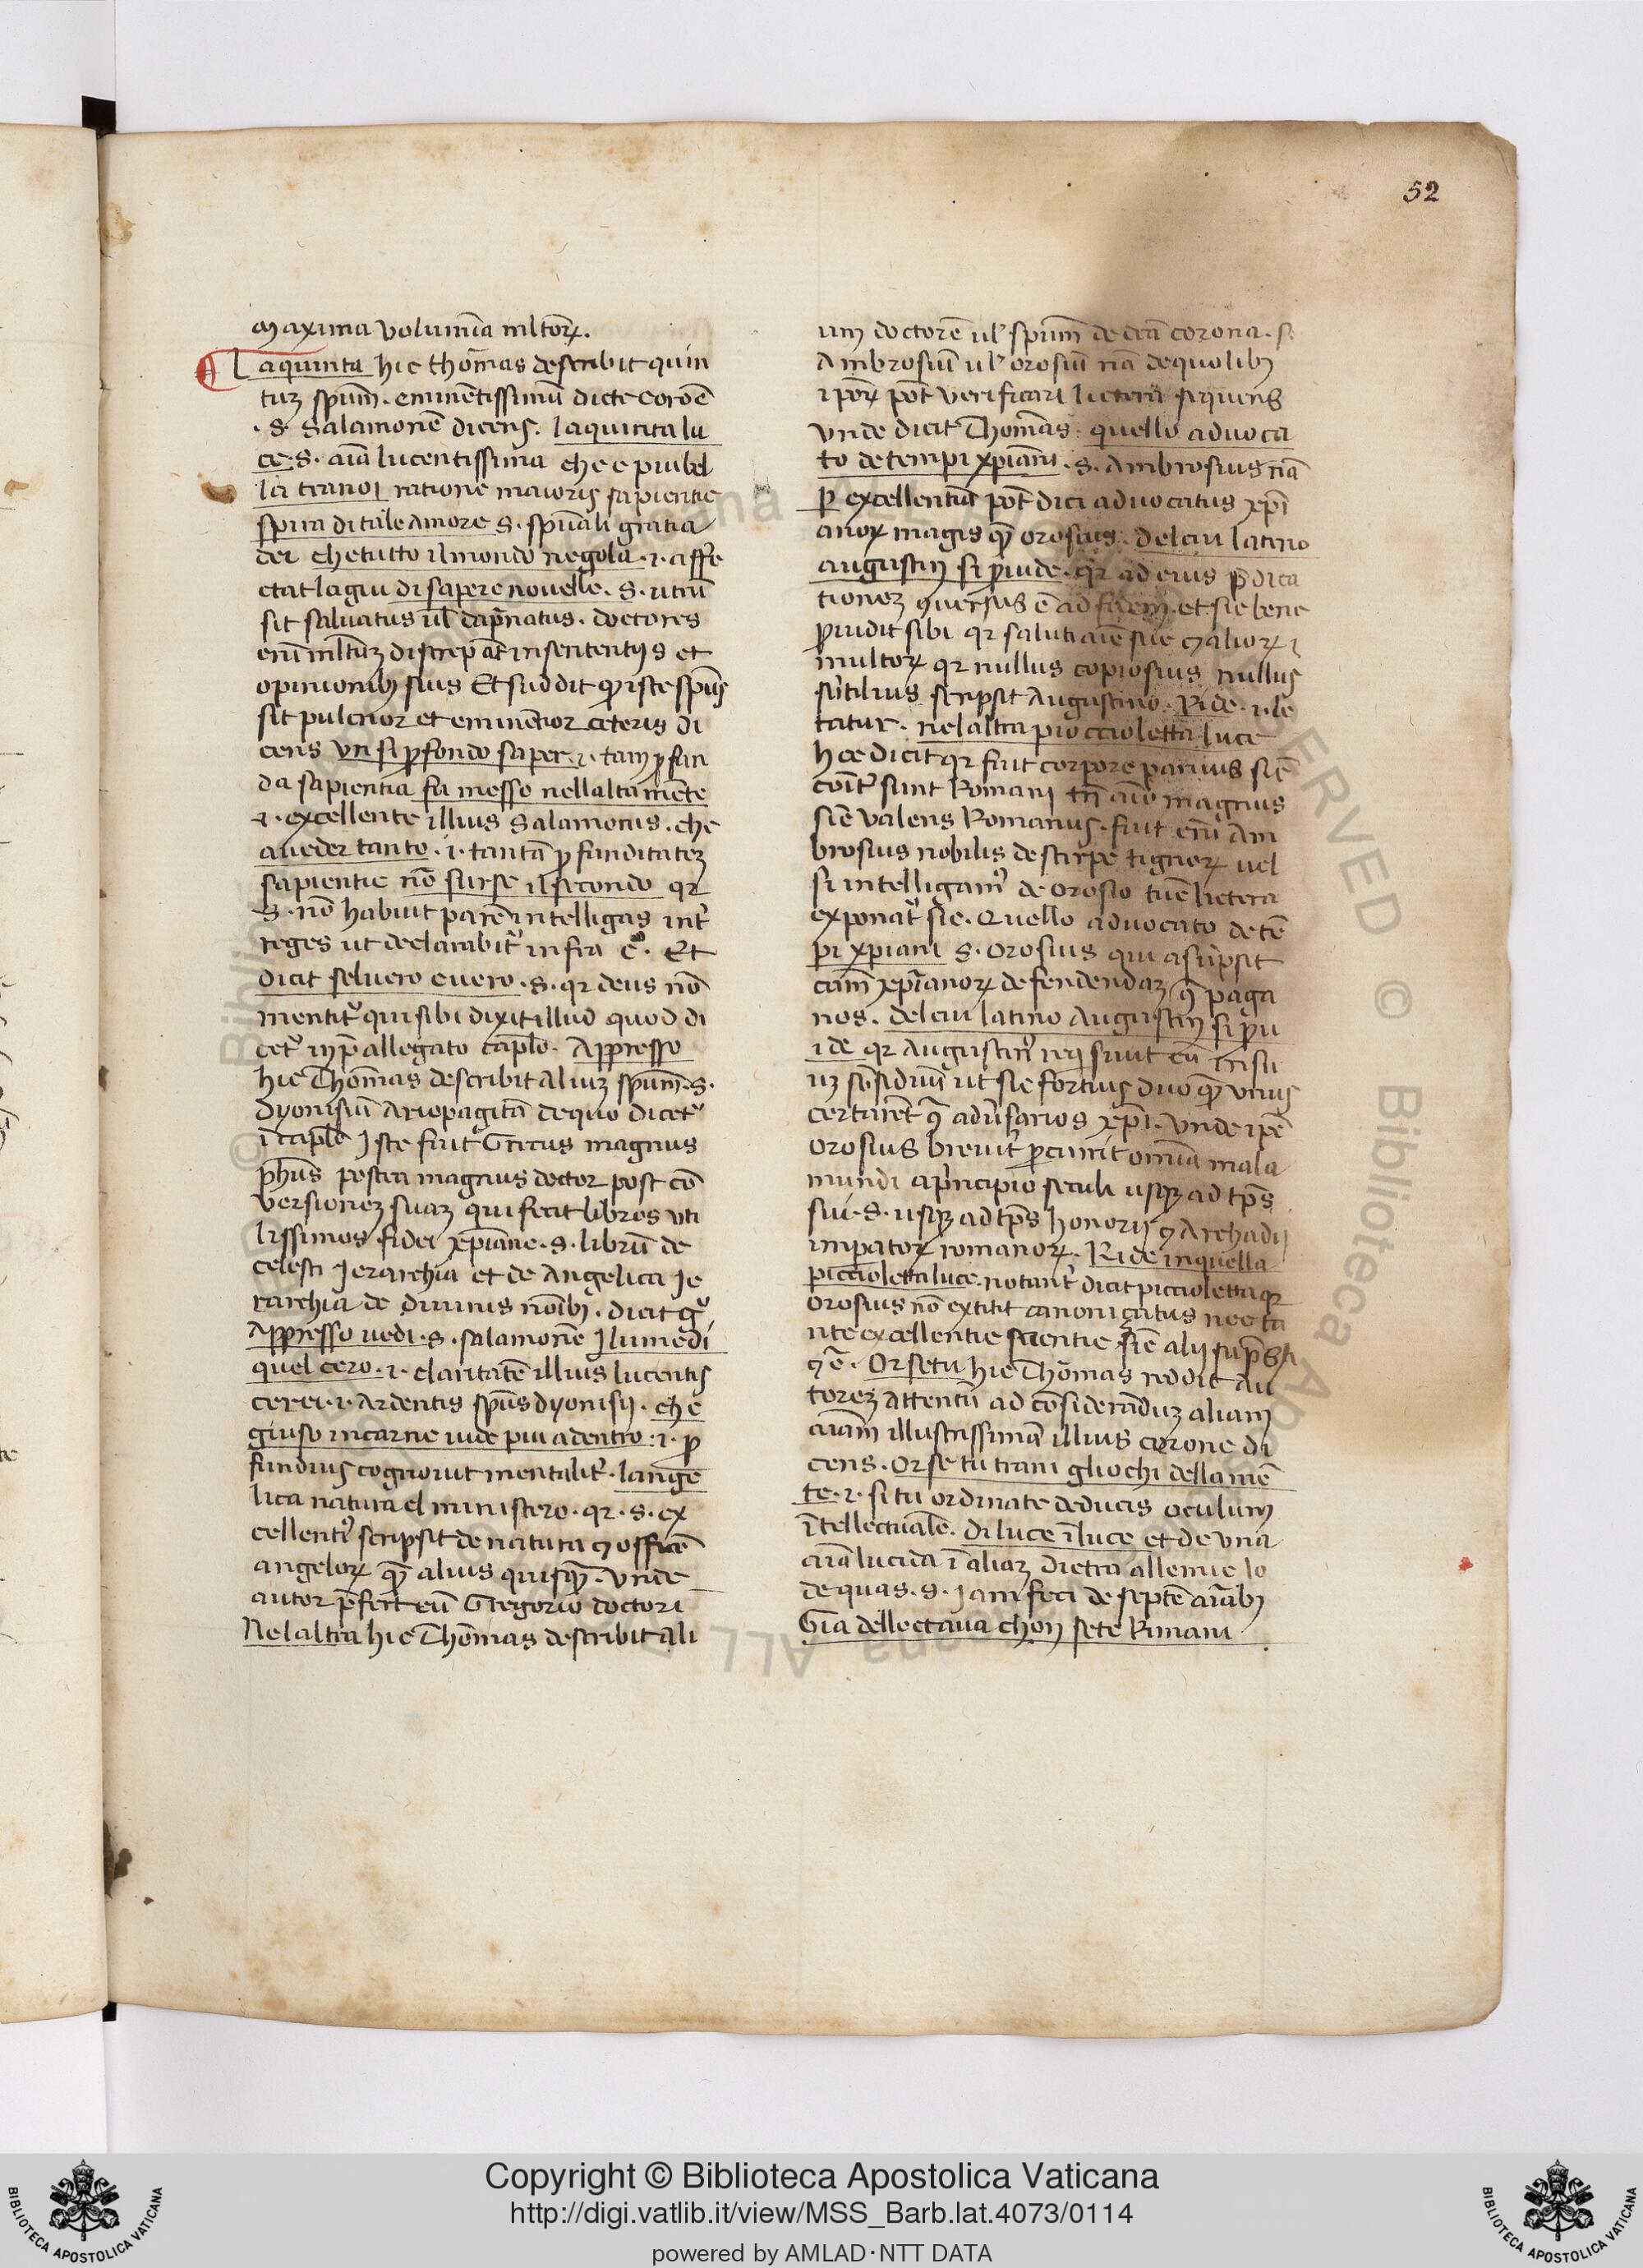 52
maxima volumīa mltoꝝ.
Laquinta hic thōmas describit quin
tuȝ spūm. eminētissimū dicte coroē
.S. Salamonē dicens. laquinta lu
ce. S. aīa lucentissima che e piu bel
la tranoi ratione maioris sapientie
spira di tale amore S. spūali gratia
dei che tutto il mondo negola .i. affe
ctat lagiu di sapere novelle. S. utrū
sit salvatus ul dāpnatus. doctores
enī mltuȝ discrepāt in sententijs et
opinionibȝ suis Et subdit qꝫ iste spūs
sit pulcrior et eminētior ceteris di
cens vn si ꝓfondo saper .i. tam ꝓfun
da sapientia fu messo nellalta mēte
.i. excellente illius Salamonis. che
a veder tanto .i. tantā ꝓfunditateȝ
sapientie nō surse il secondo qꝛ
S. nō habuit parē intelligas int᷑
reges ut declarabit᷑ infra c̄. Et
dicit seluero e vero. S. qꝛ deus nō
mentit᷑ qui sibi dixit illud quod di
cet᷑ in p̄allegato caplo. Appresso
hic Thōmas describit aliuȝ spūm. S.
dyonisiū Ariopagitā de quo dicet᷑
ī caplo Iste fuit Grecus magnus
phūs postea magnus doctor post cō
versioneȝ suaȝ qui fecit libros uti
lissimos fidei xp̄iane. S. librū de
celesti Jerarchia et de Angelica Je
rarchia de divinis noībȝ. dicit g᷑
Appresso vedi. S. salamonē Ilume di
quel cero .i. claritatē illius lucentis
cerei .i. ardentis spūs dyonisij. che
giuso in carne vide piu adentro .i. ꝓ
fundius cognovit mentalit᷑. lange
lica natura el ministero. qꝛ. S. ex
cellent᷑ scripsit de natura ⁊ officio
angeloꝝ qꝫ alius quisqꝫ. Unde
autor p̄fert eū Gregorio doctori
Nel altra hic Thōmas describit ali
um doctorē ul᷑ spūm de dc̄a corona. S.
Ambrosiū ul᷑ orosiū nā de quolibȝ
ipoꝝ pōt verificari lictera sequens
Unde dicit Thōmas quello advoca
to de tempi xp̄iani. S. Ambrosius nā
ꝑ excellentiā pōt dici advocatus xp̄i
anoꝝ magis qꝫ orosius. del cui latino
augustin si ꝓvide. qꝛ ad eius p̄dica
tioneȝ ꝯversus ē ad fidem. et sic bene
ꝓvidit sibi qꝛ saluti aīe sue ⁊ alioꝝ ⁊
multoꝝ qꝛ nullus copiosius nullus
subtilius scripsit Augustino. Ride .i. le
tatur. nel altra piccioletta luce
hoc dicit qꝛ fuit corpore parvus sic̄
cōit᷑ sunt Romani tn̄ aīo magnus
sic̄ valens Romanus. fuit enī Am
brosius nobilis de stirpe tignoꝝ vel
si intelligam᷑ de orosio tūc lictera
exponat᷑ sic. Quello advocato de tē
pi xp̄iani S. orosius qui asūpsit
cām xp̄ianoꝝ defendendaȝ ꝯ paga
nos. del cui latino Augustin si ꝓv
ide qꝛ Augustin᷑
certarēt ꝯ adv̄sarios xp̄i. Unde ipē
orosius brevit᷑ ꝑcurrit omīa mala
mundi a principio seculi usqꝫ ad tp̄s
sui. S. usqꝫ ad tp̄s honorij ⁊ Archadij
impatoꝝ romanoꝝ. Ride in quella
piccioletta luce. notant᷑ dicit piccioletta qꝛ
orosius nō extitit canonicatus nec ta
nte excellentie scientie sic̄ alij
Or se tu hic Thōmas reddit au
toreȝ attentū ad cōsiderāduȝ aliam
aīam illustrissimā illius corone di
cens. Or se tu trani gliochi della mē
te .i. si tu ordinate deducis oculum
ītellectualē. di luce ī luce et de una
aīa lucida ī aliaȝ dietra alle mie lo
de quas. S. iam feci de septē aīabȝ
Gia dellectava chon sete Rimani
Copyright © Biblioteca Apostolica Vaticana
http://digi.vatlib.it/view/MSS_Barb.lat.4073/0114
powered by AMLAD·NTT DATA
BIBLIOTECA APOSTOLICA VATICANA
BIBLIOTECA APOSTOLICA VATICANA